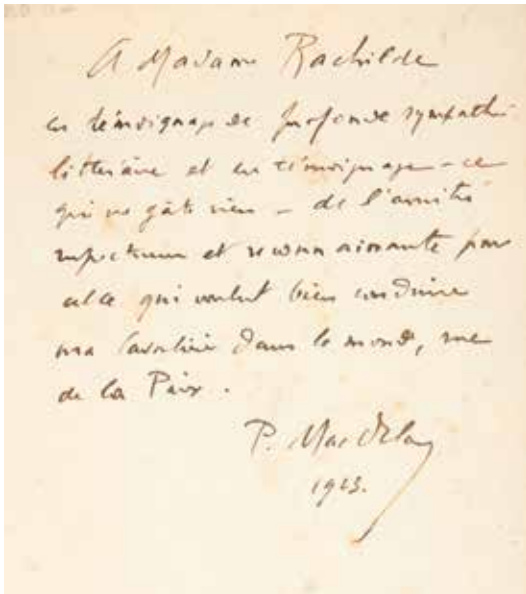 A Madame Rachilde
en témoignage de profonde sympathie
littéraire et en témoignage – ce
qui ne gâte rien – de l'amitié
respectueuse et reconnaissante pour
celle qui voulut bien conduire
ma Cavalière dans le monde, rue
de la Paix.
P. Mac Orlan
1923.